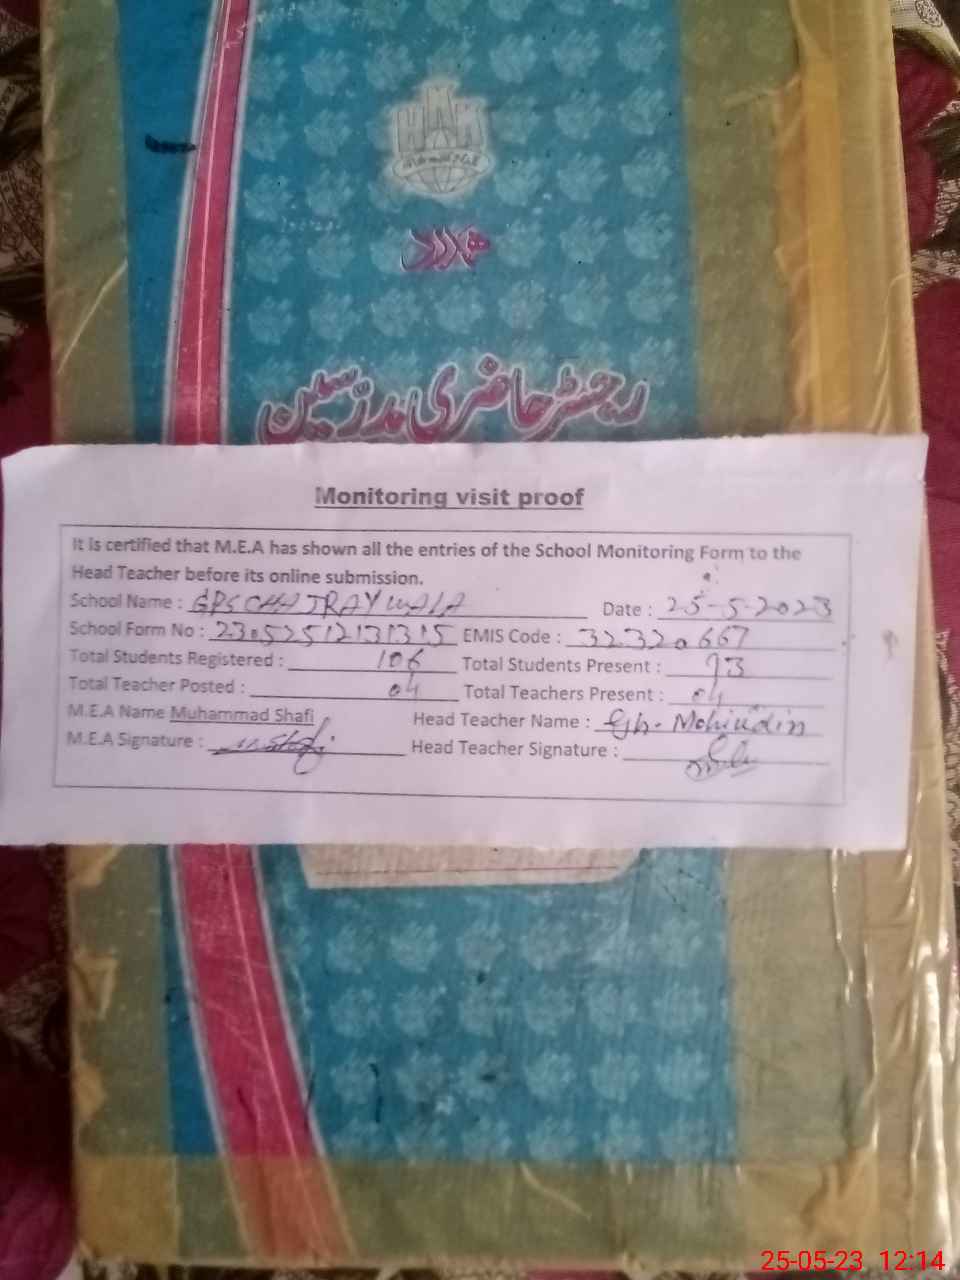 ہمدرد
رجسٹر حاضری مدرسین
Monitoring visit proof
It is certified that M.E.A has shown all the entries of the School Monitoring Form to the
Head Teacher before its online submission.
School Name : GPS CHAJRAY WALA Date : 25-5-2023
School Form No : 23052512131315 EMIS Code : 32320667
Total Students Registered : 106 Total Students Present : 93
Total Teacher Posted : 04 Total Teachers Present : 04
M.E.A Name Muhammad Shafi Head Teacher Name : Gh. Mohiudin
M.E.A Signature : Head Teacher Signature :
25-05-23 12:14